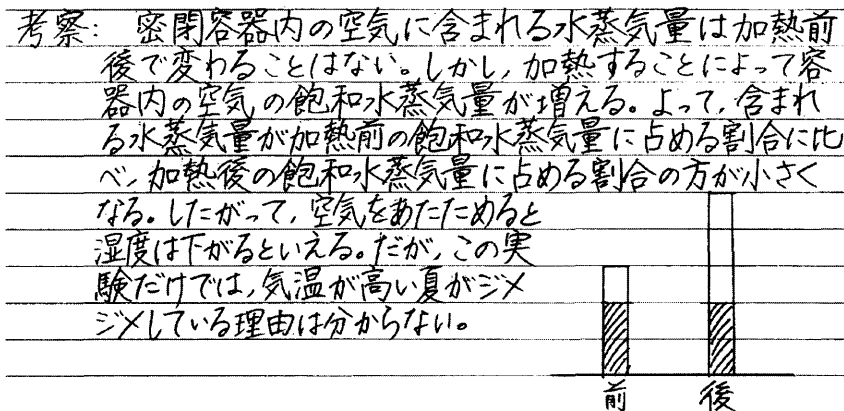 考察： 密閉容器内の空気に含まれる水蒸気量は加熱前
後で変わることはない。しかし，加熱することによって容
器内の空気の飽和水蒸気量が増える。よって，含まれ
る水蒸気量が加熱前の飽和水蒸気量に占める割合に比
べ，加熱後の飽和水蒸気量に占める割合の方が小さく
なる。したがって，空気をあたためると
湿度は下がるといえる。だが，この実
験だけでは，気温が高い夏がジメ
ジメしている理由は分からない。
前 後